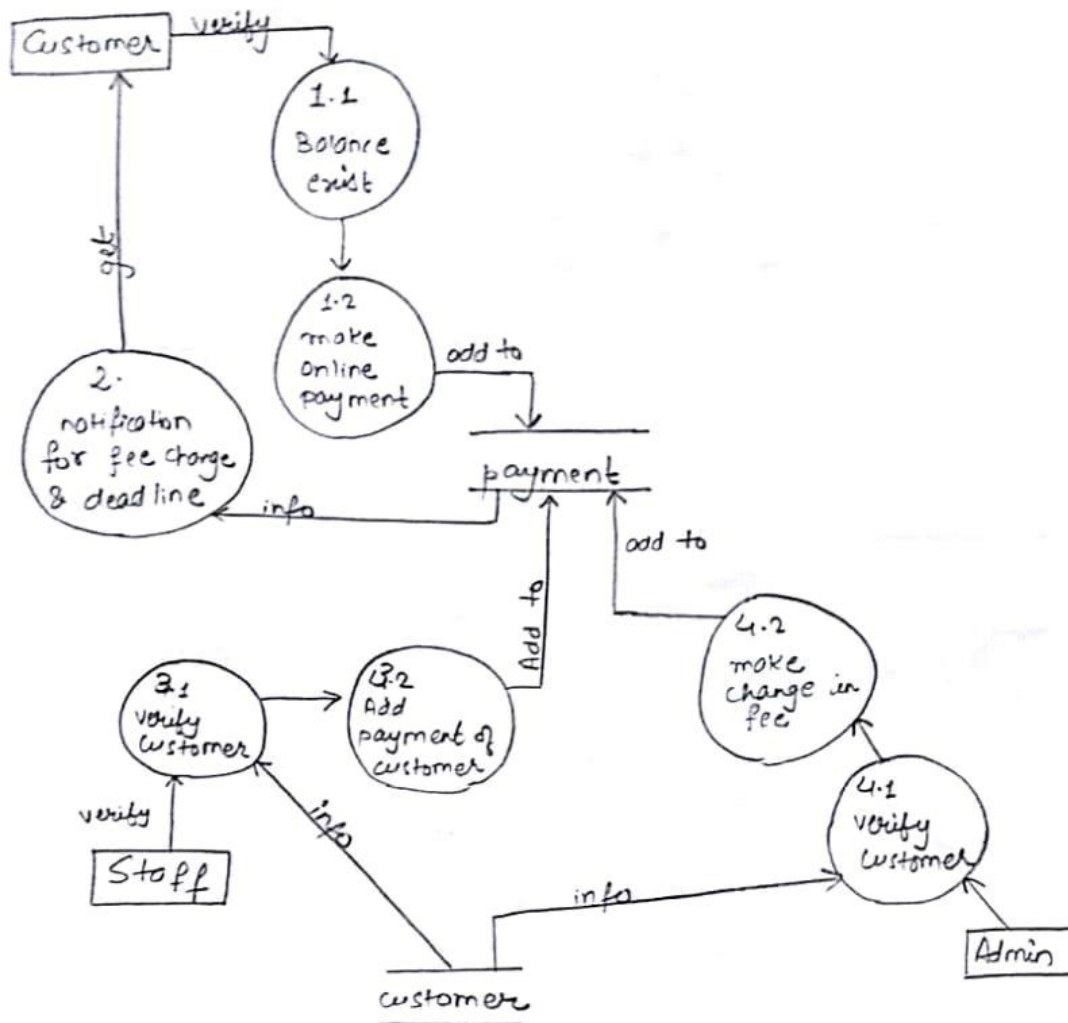 Customer
verify
1.1
Balance
exist
get
1.2
make
online
payment
add to
2.
notification
for fee charge
& deadline
payment
info
add to
Add to
4.2
make
change in
fee
3.1
verify
customer
3.2
Add
payment of
customer
4.1
verify
customer
verify
info
Staff
info
Admin
customer